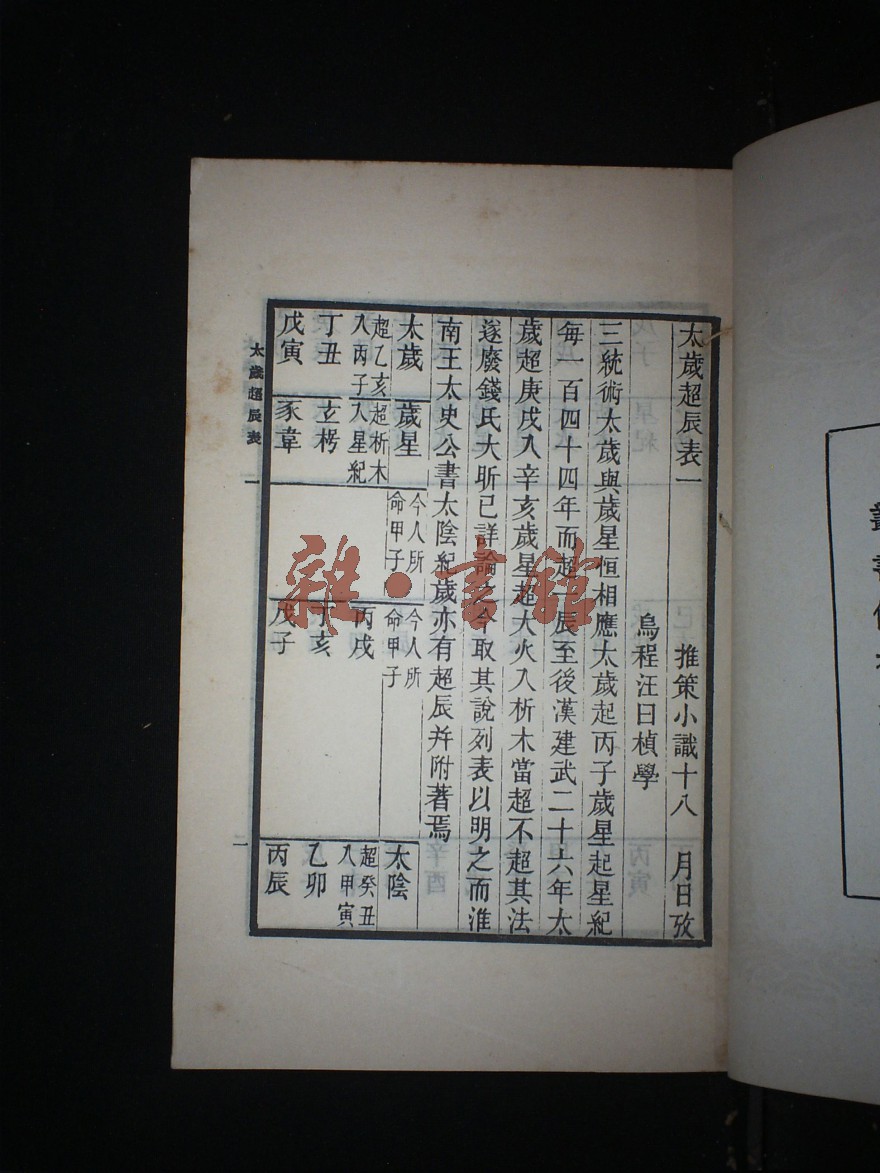 太歲超辰表一　推策小識十八　月日攷
烏程汪日楨學
三統術太歲與歲星恒相應太歲起丙子歲星起星紀
每一百四十四年而超一辰至後漢建武二十六年太
歲超庚戌入辛亥歲星超大火入析木當超不超其法
遂廢錢氏大昕已詳論之今取其說列表以明之而淮
南王太史公書太陰紀歲亦有超辰幷附著焉
太歲　歲星　今人所命甲子　今人所命甲子　太陰
超乙亥入丙子　超析木入星紀　丙戌　超癸丑入甲寅
丁丑　玄枵　丁亥　乙卯
戊寅　豕韋　戊子　丙辰
太歲超辰表　一
一
雜·書館